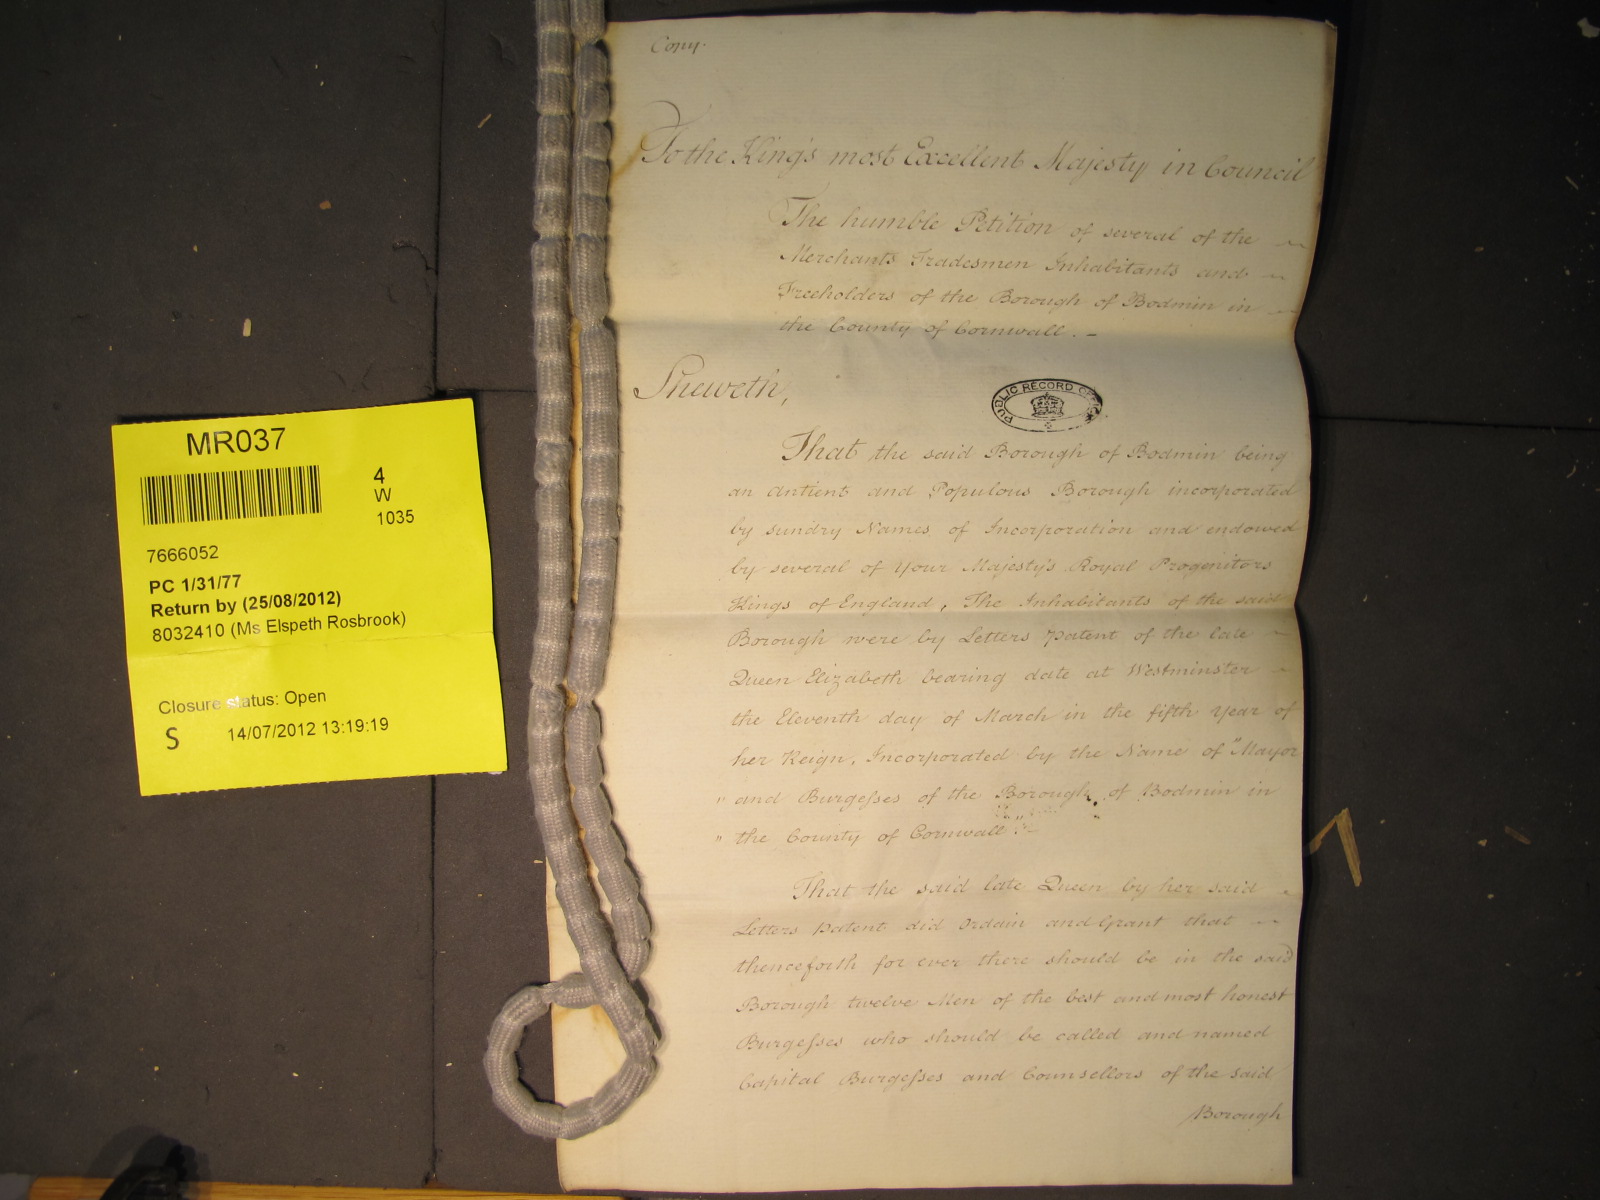 MR037
4
W
1035
7666052
PC 1/31/77
Return by (25/08/2012)
8032410 (Ms Elspeth Rosbrook)
Closure status: Open
S 14/07/2012 13:19:19
Copy.
To the King's most Excellent Majesty in Council
The humble Petition of several of the
Merchants Tradesmen Inhabitants and
Freeholders of the Borough of Bodmin in
the County of Cornwall. —
Sheweth,
PUBLIC RECORD OFFICE
That the said Borough of Bodmin being
an antient and Populous Borough incorporated
by sundry Names of Incorporation and endowed
by several of your Majesty's Royal Progenitors
Kings of England, The Inhabitants of the said
Borough were by Letters patent of the late
Queen Elizabeth bearing date at Westminster
the Eleventh day of March in the fifth year of
her Reign, Incorporated by the Name of "Mayor
" and Burgesses of the Borough of Bodmin in
" the County of Cornwall"
That the said late Queen by her said
Letters patent did Ordain and Grant that
thenceforth for ever there should be in the said
Borough twelve Men of the best and most honest
Burgesses who should be called and named
Capital Burgesses and Counsellors of the said
Borough